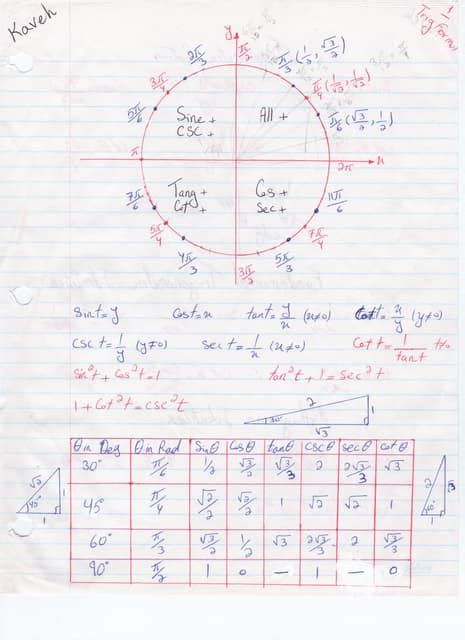 Kaveh
1
Trig Forms
y
π/2
2π/3
π/3 (1/2, √3/2)
3π/4
π/4 (1/√2, 1/√2)
5π/6
π/6 (√3/2, 1/2)
Sine +
CSC +
All +
π
x
2π
Tang +
Cot +
Cos +
Sec +
7π/6
11π/6
5π/4
7π/4
4π/3
3π/2
5π/3
Sint=y
Cost=x
tant=y/x (x≠0)
Cott=x/y (y≠0)
CSC t=1/y (y≠0)
Sec t=1/x (x≠0)
Cot t=1/tant t≠0
Sin²t+Cos²t=1
tan²t+1=Sec²t
1+Cot²t=CSC²t
2
1
30°
√3
θ in Deg θ in Rad Sinθ Cosθ tanθ cscθ secθ cotθ
30° π/6 1/2 √3/2 √3/3 2 2√3/3 √3
√2
1
45°
1
45° π/4 √2/2 √2/2 1 √2 √2 1
2
√3
60°
1
60° π/3 √3/2 1/2 √3 2√3/3 2 √3/3
90° π/2 1 0 — 1 — 0